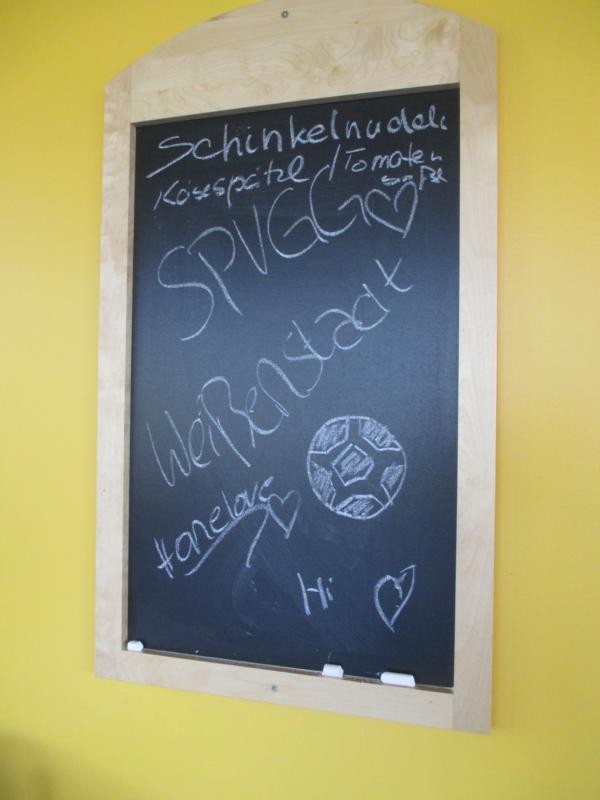 Schinkelnudeln
Käsespätzle / Tomaten
soße
SPVGG
Weißenstadt
#onelove
Hi